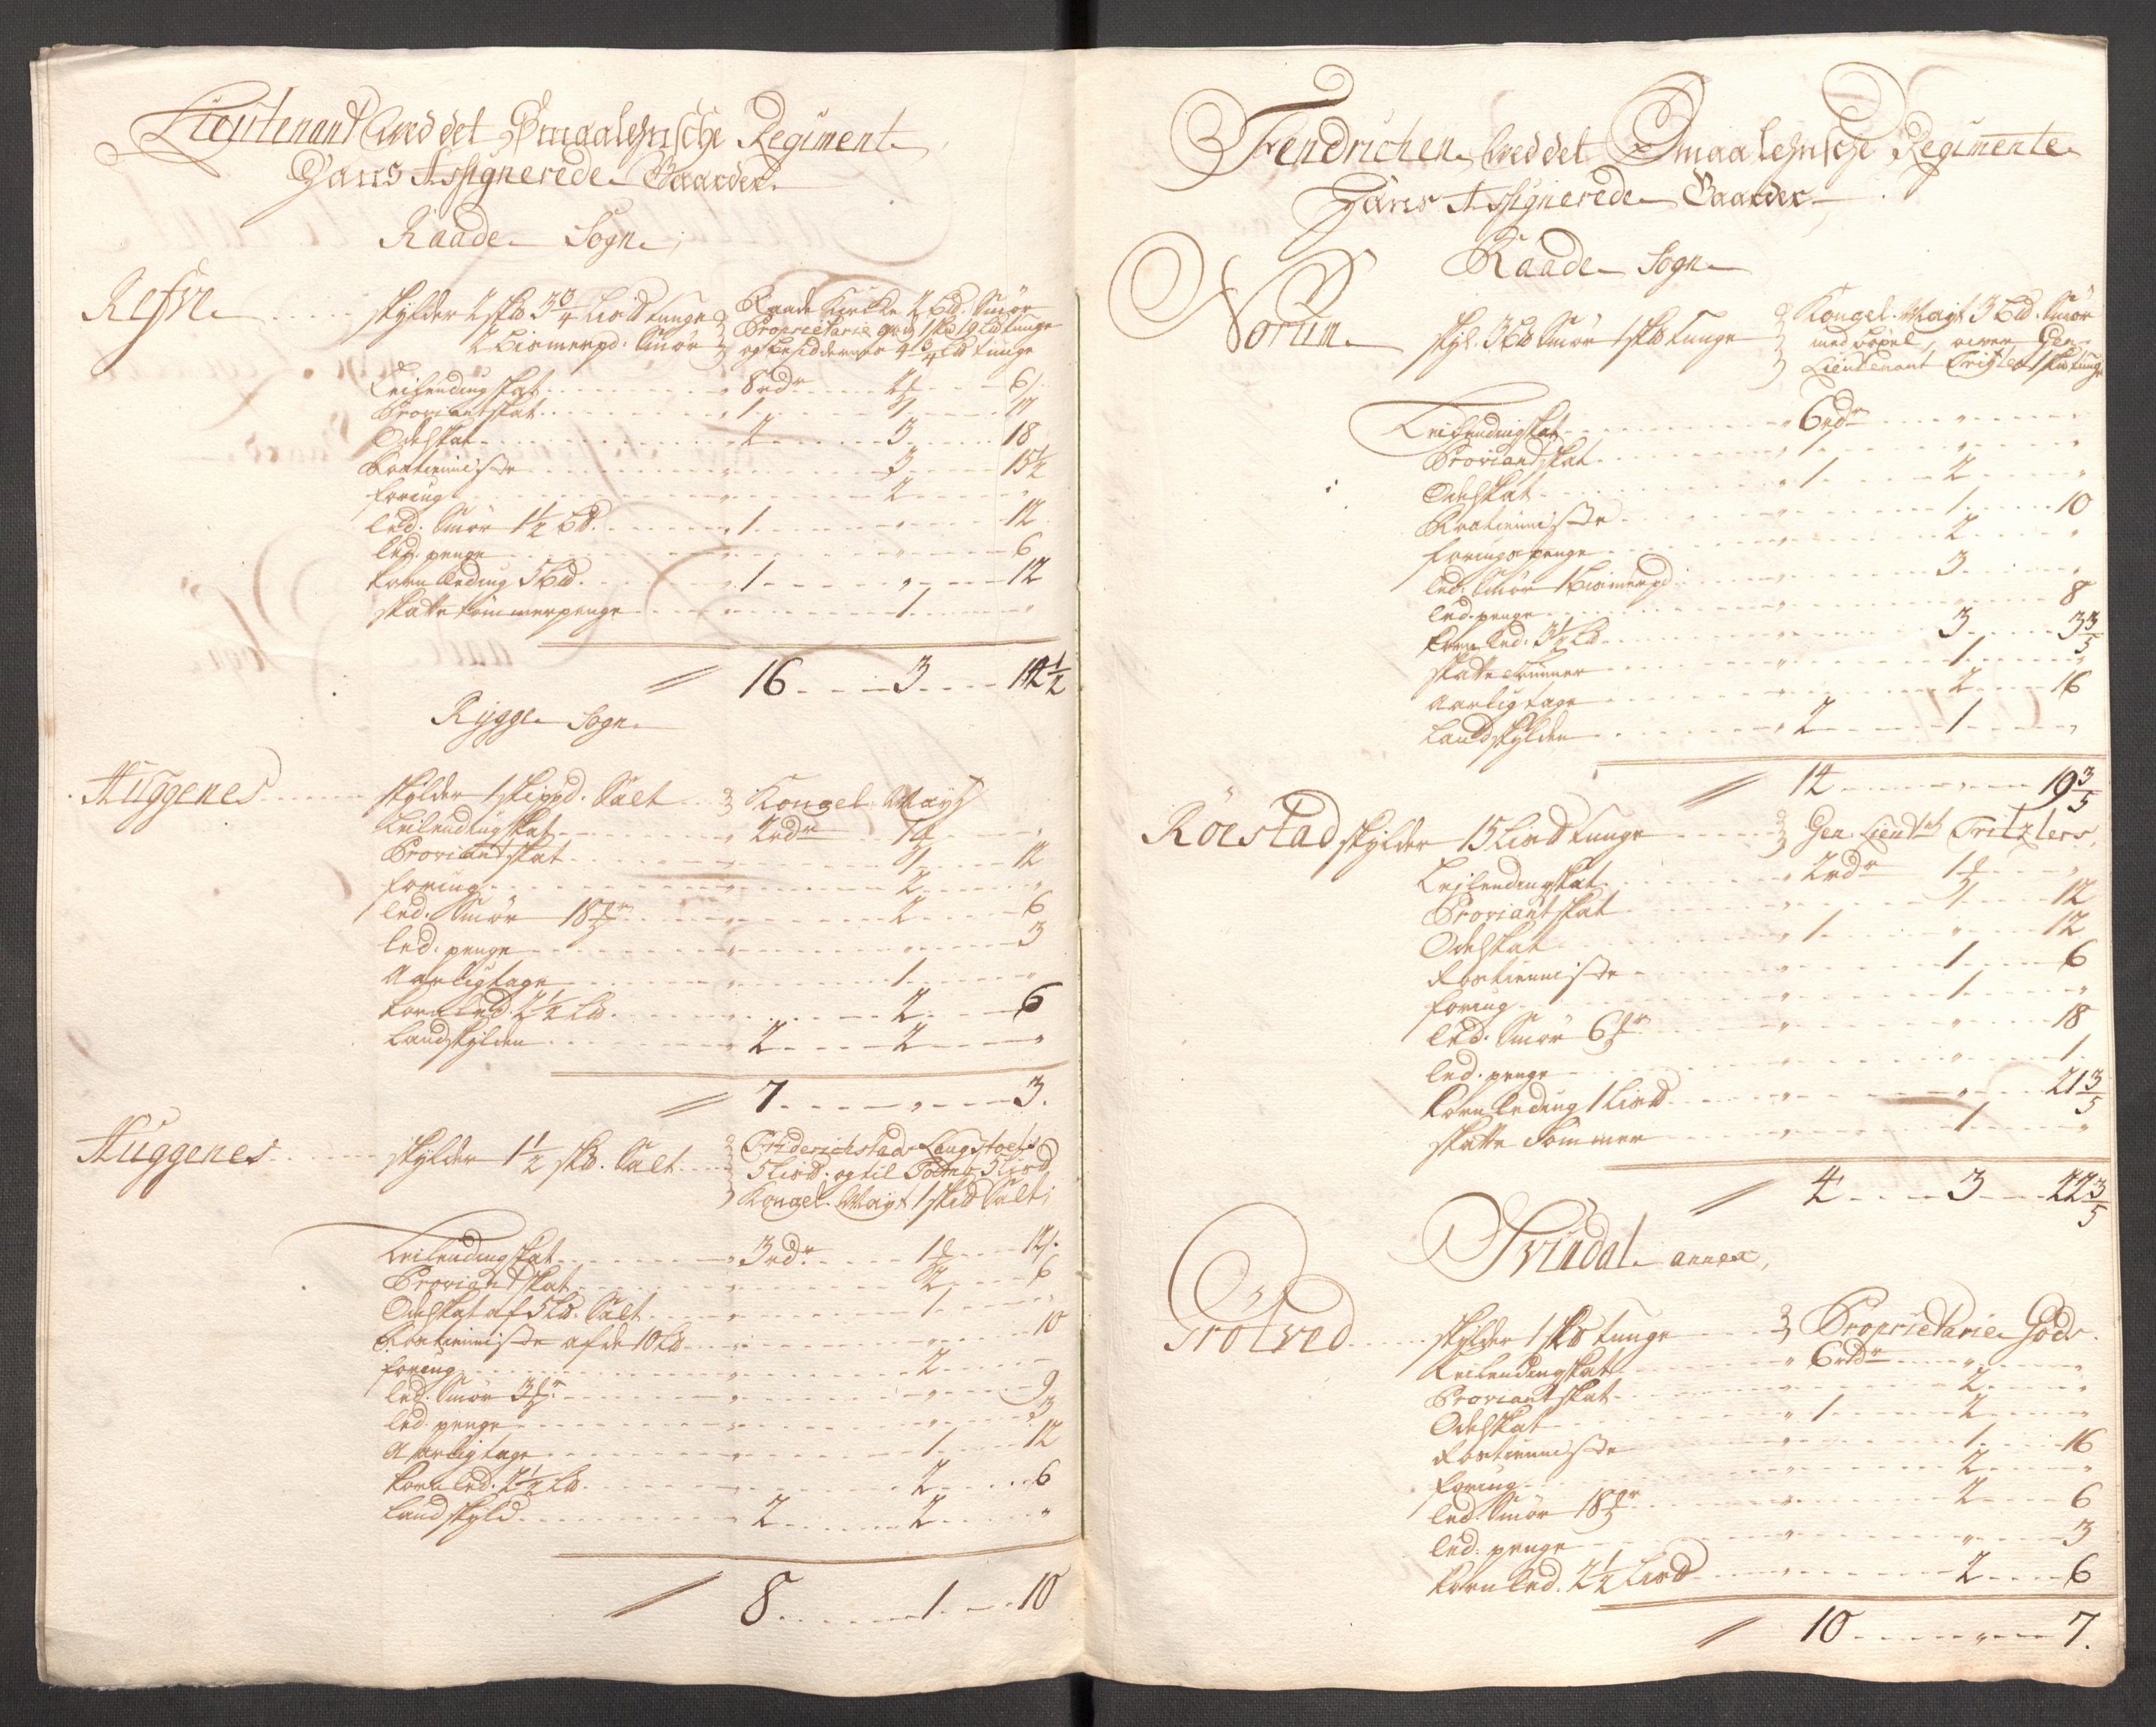 Lieutenant wed det Smaalehnsche Regiment
Hans Assignerede Gaarder
Raade Sogn,
Refne skylder 2 skb 3 3/4 Lisb tunge Raade Kircke 2 Bd. Smör
2 bismerpd. Smör Proprietarie god 1 skb 19 Lb tunge
og besidderens 4 3/4 Lb tunge
Leilendingskat 8 rdr 2 6
Proviantskat 1 1
Odelskat 2 3 18
Rostieniste 3 15 1/2
foring 2 "
led. Smör 1 1/2 Bd. 1 " 12
led. penge " " 6
korn leding 5 Lb. 1 " 12
skattetömmerpenge 1 "
16 3 1/2
Rygge Sogn
Huggenes skylder 1 skippd. Salt Kongel. Mayt
Leilendingskat 2 rdr 1 "
Proviantskat 1 12
foring 2 "
led. Smör 18 2 6
led. penge " 3
Aarligtage 1 "
korn led. 2 1/2 Lb. 2 6
Landskylden 2 2 "
7 " 3.
Huggenes skylder 1 1/2 skb. Salt Friderichstads Laugstoel
5 Lisb. og til 5 Lisb
Kongel. Mayt 1 skb Salt;
Leilendingskat 3 rdr. 1 12
Proviandskat " 2 6
Odelskat af 5 Lb. Salt 1 "
Rostieniste af de 10 Lb " 10
foring 2
led. Smör 3 " 9
led. penge " 3
Aarligtage 1 12
korn led. 2 1/2 Lb 2 6
Landskyld 2 2 "
8 1 10
Fendrichen wed det Smaalehnsche Regimente
Hans Assignerede Gaarder
Raade Sogn
Norum skyl. 3 Bd Smör 1 skb tunge Kongel. Mayt 3 Bd. Smör
med böxel, Gen-
Lieutenant 1 skb tunge
Leilendingskat 6 rdr " "
Proviandskat 1 " "
Odelskat 1 2 "
Rostieniste 1 10
foringspenge 2 "
led. Smör 1 bismerpd 3 "
led. penge " 8
korn led. 3 1/2 Lb 3 3 3/5
skattetömmer 1 "
Aarligtage 2 16
Landskylden 2 1 "
14 " 19 3/5
Röestad skylder 15 Lisb tunge Gen. Lieutnt Tritzlers
Leilendingskat 2 rdr 1 "
Proviantskat 1 12
Odelskat 1 " 12
Rostieniste 1 6
foring 1 "
led. Smör 6 " 18
led. penge " 1
korn leding 1 Lisb " 21 3/5
skatte tömmer 1 "
4 3 22 3/5
Svindal annex,
Grötved skylder 1 skb tunge Proprietarie Göds.
Leilendingskat 6 rdr " "
Proviantskat 2 "
Odelskat 1 2 "
Rostieniste 1 16
foring 2 "
led. Smör 18 2 6
led. penge " 3
korn led. 2 1/2 Lisb 2 6
10 " 7.